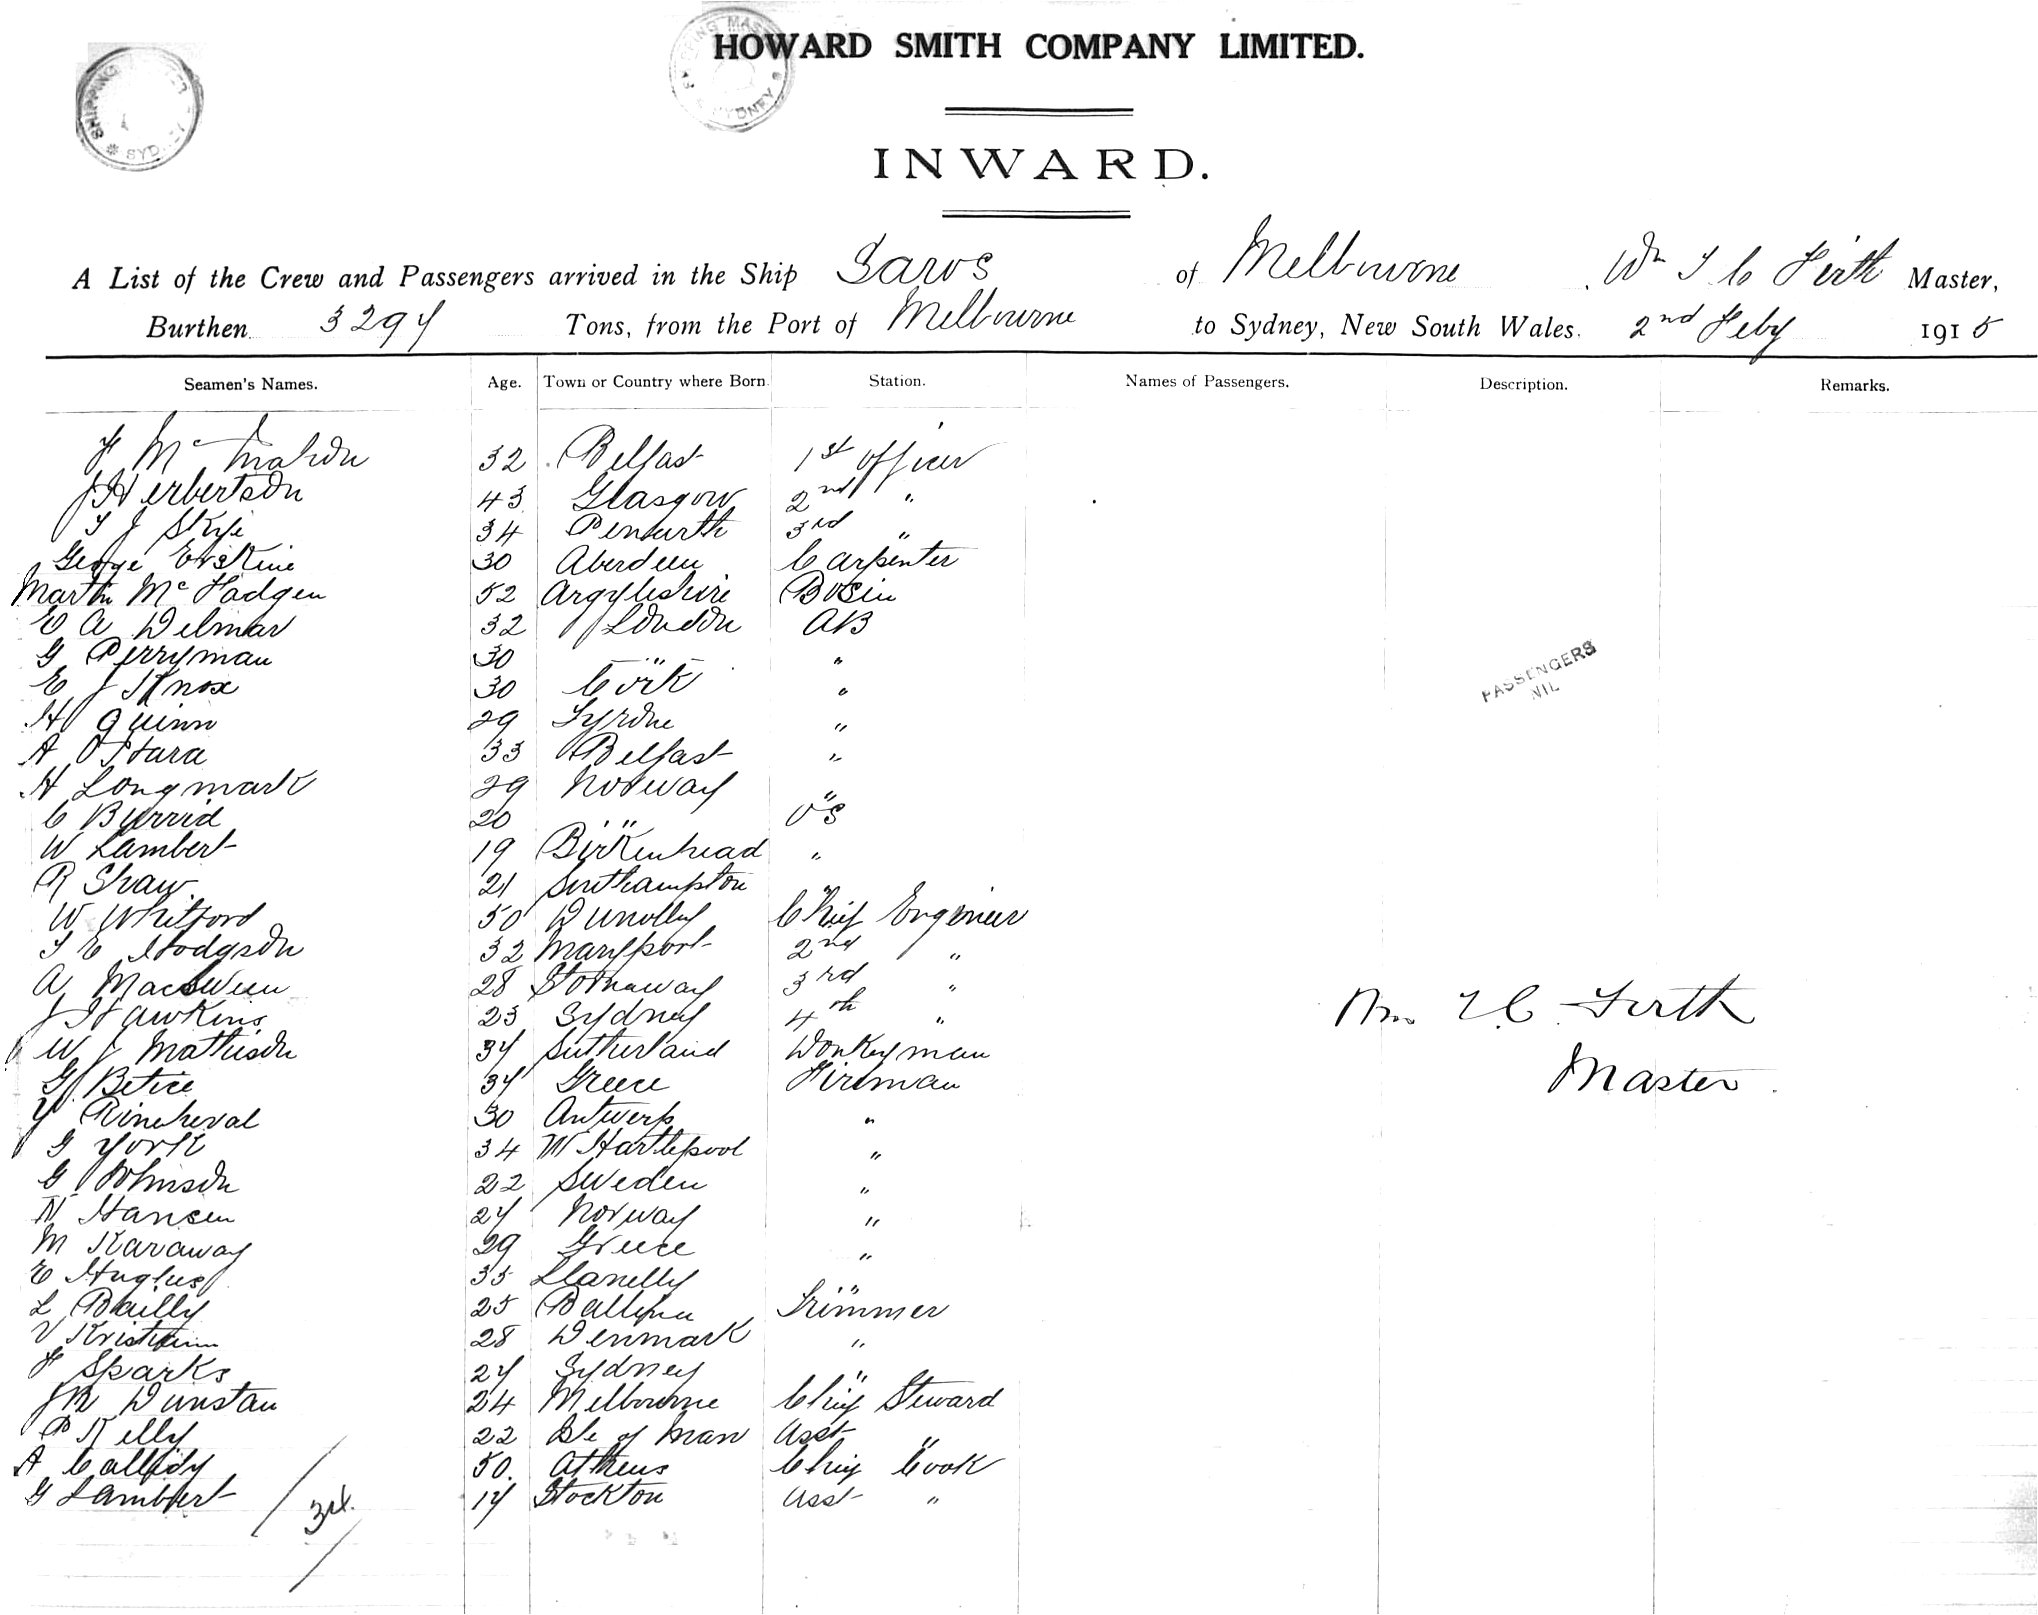 HOWARD SMITH COMPANY LIMITED.
INWARD.
A List of the Crew and Passengers arrived in the Ship Saros of Melbourne Wm T C Firth Master,
Burthen 3297 Tons, from the Port of Melbourne to Sydney, New South Wales. 2nd Feby 1915
Seamen's Names. Age. Town or Country where Born. Station. Names of Passengers. Description. Remarks.
F McMahon 32 Belfast 1st officer
J Herbertson 43 Glasgow 2nd "
T J Skye 34 Penarth 3rd "
George Erskine 30 Aberdeen Carpenter
Martin McFadgen 52 Argyleshire Bosin
E A Delmar 32 London AB
G Perryman 30 " "
E J Knox 30 Cork "
H Quinn 29 Tyrone "
A O'Hara 33 Belfast "
H Longmark 29 Norway "
C 20 " OS
W Lambert 19 Birkenhead "
R Shaw 21 Southampton "
W Whitford 50 Dunolly Chief Engineer
T E Hodgson 32 Maryport 2nd "
A MacSween 28 Stornaway 3rd "
J Hawkins 23 Sydney 4th "
W J Mathison 37 Sutherland Donkeyman
G Betice 37 Greece Fireman
Rincheval 30 Antwerp "
G York 34 W Hartlepool "
G Johnson 22 Sweden "
N Hansen 27 Norway "
M Karaway 29 Greece "
E Hughes 35 Llanelly "
L Bailly 25 Ballina Trimmer
V 28 Denmark "
F Sparks 27 Sydney "
J R Dunstan 24 Melbourne Chief Steward
P Kelly 22 Isle of Man Asst "
A 50. Athens Chief Cook
G Lambert 17 Stockton Asst "
PASSENGERS
NIL
Wm T C Firth
Master
SHIPPING
SYDNEY